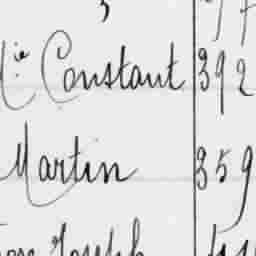 ie Constant 392
Martin 359
Joseph